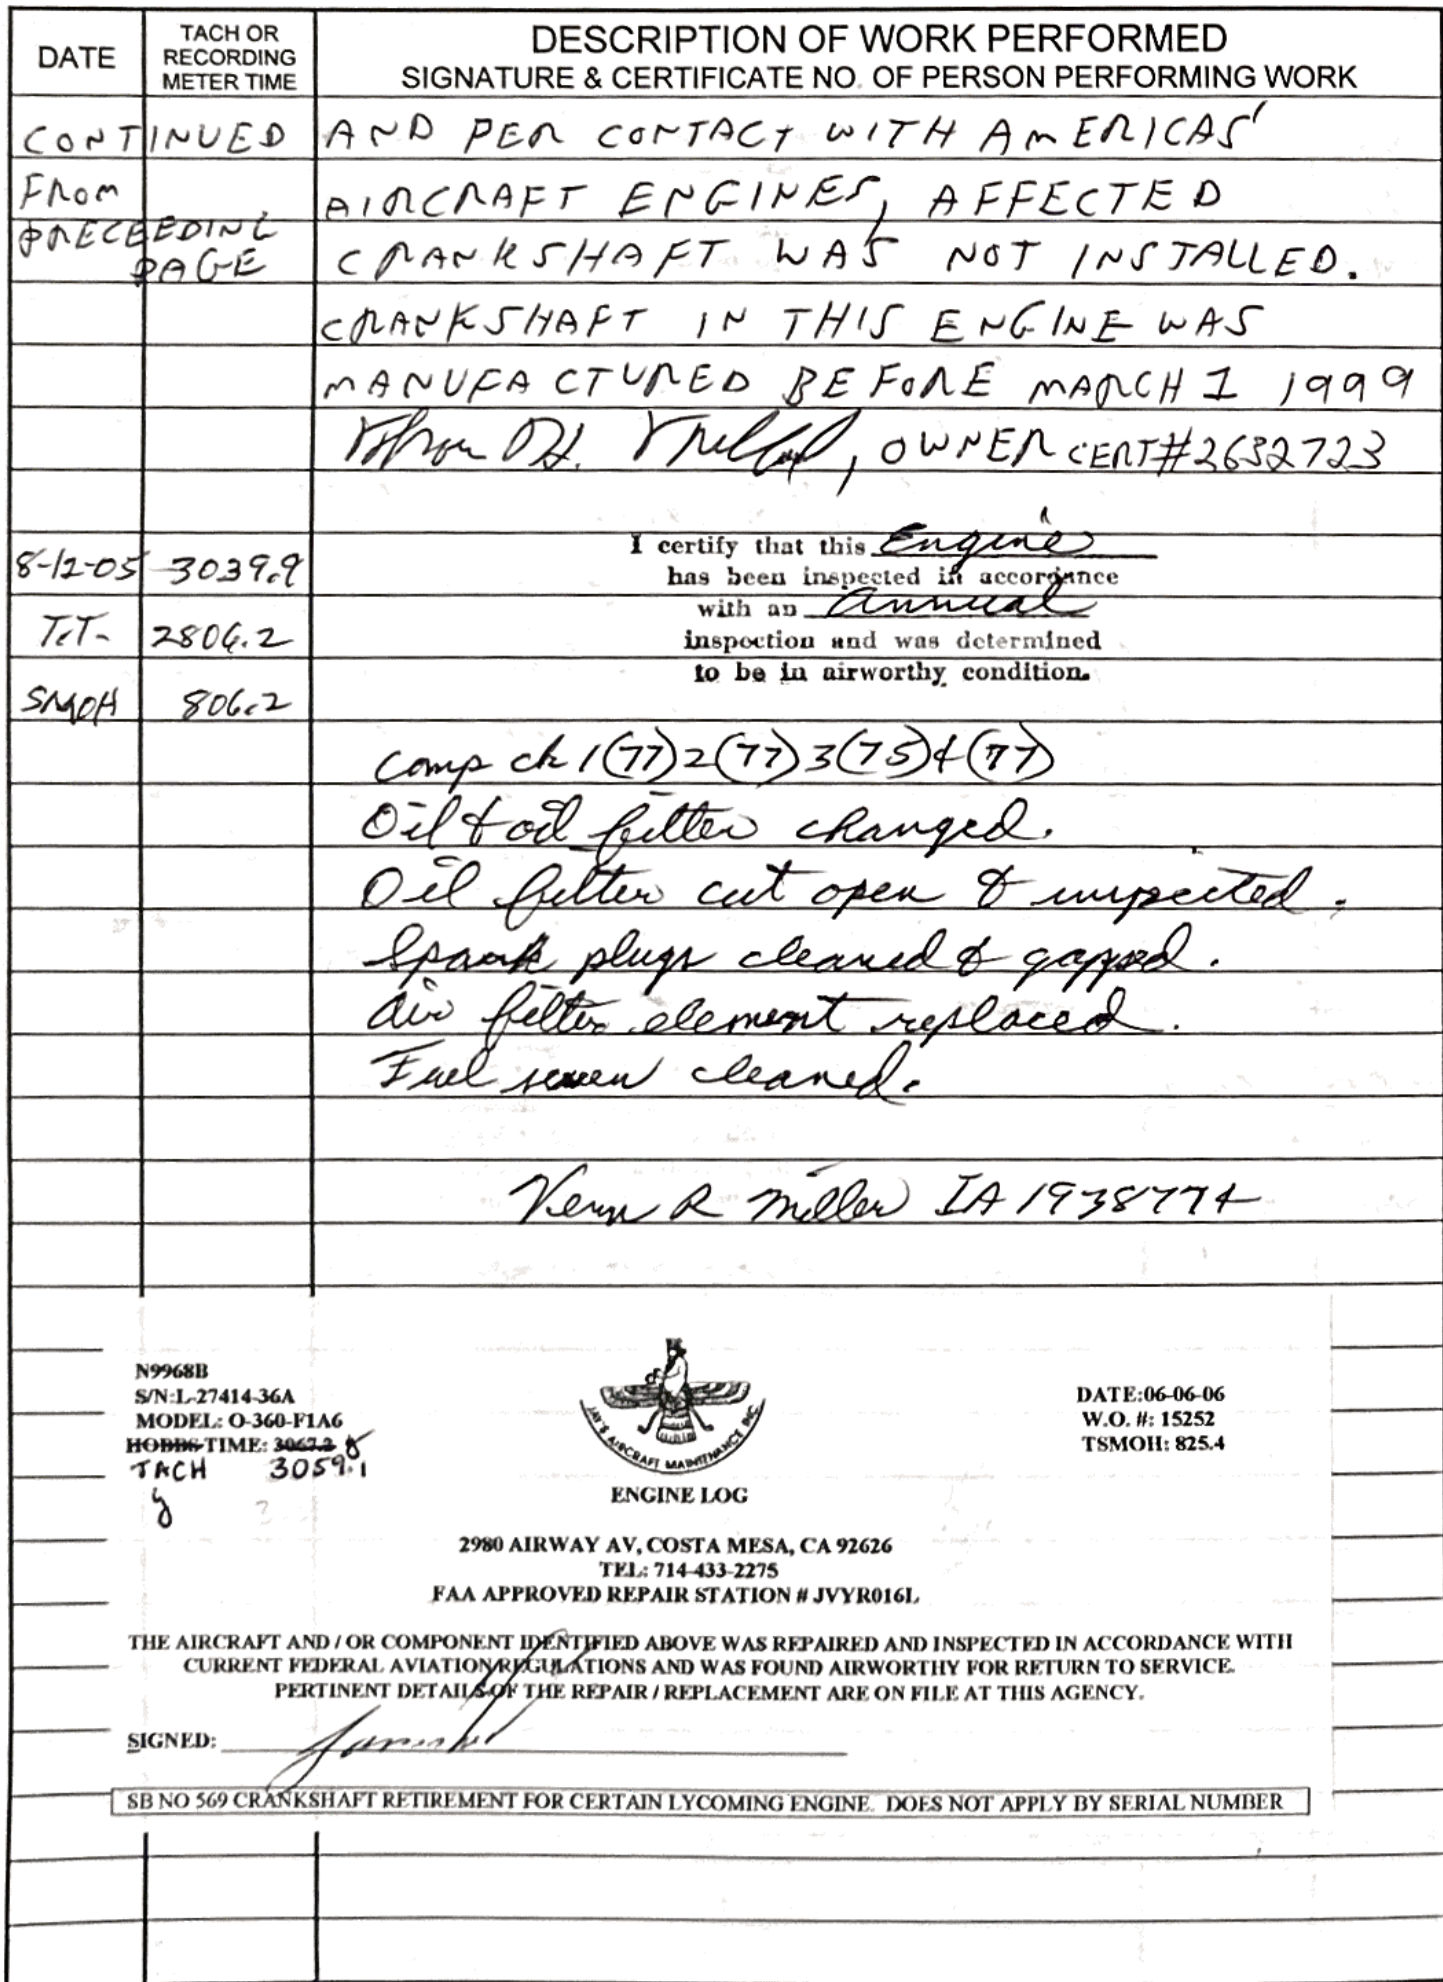 DATE
TACH OR
RECORDING
METER TIME
DESCRIPTION OF WORK PERFORMED
SIGNATURE & CERTIFICATE NO. OF PERSON PERFORMING WORK
CONTINUED AND PER CONTACT WITH AMERICAS'
FROM AIRCRAFT ENGINES, AFFECTED
PRECEEDING
PAGE CRANKSHAFT WAS NOT INSTALLED.
CRANKSHAFT IN THIS ENGINE WAS
MANUFACTURED BEFORE MARCH 1 1999
, OWNER CERT#2632723
I certify that this Engine
8-12-05 3039.9
has been inspected in accordance
with an annual
T.T. 2806.2
inspection and was determined
to be in airworthy condition.
SMOH 806.2
Comp ck 1(77)2(77)3(75)4(77)
Oil & oil filter changed.
Oil filter cut open & inspected.
Spark plugs cleaned & gapped.
Air filter element replaced.
Fuel screen cleaned.
Vern R Miller IA 1938774
N9968B
S/N:L-27414-36A
MODEL: O-360-F1A6
HOBBS TIME: 3067.2
TACH 3059.1
JAY'S AIRCRAFT MAINTENANCE INC.
DATE:06-06-06
W.O. #: 15252
TSMOH: 825.4
ENGINE LOG
2980 AIRWAY AV, COSTA MESA, CA 92626
TEL: 714-433-2275
FAA APPROVED REPAIR STATION # JVYR016L
THE AIRCRAFT AND / OR COMPONENT IDENTIFIED ABOVE WAS REPAIRED AND INSPECTED IN ACCORDANCE WITH
CURRENT FEDERAL AVIATION REGULATIONS AND WAS FOUND AIRWORTHY FOR RETURN TO SERVICE.
PERTINENT DETAILS OF THE REPAIR / REPLACEMENT ARE ON FILE AT THIS AGENCY.
SIGNED:
SB NO 569 CRANKSHAFT RETIREMENT FOR CERTAIN LYCOMING ENGINE. DOES NOT APPLY BY SERIAL NUMBER